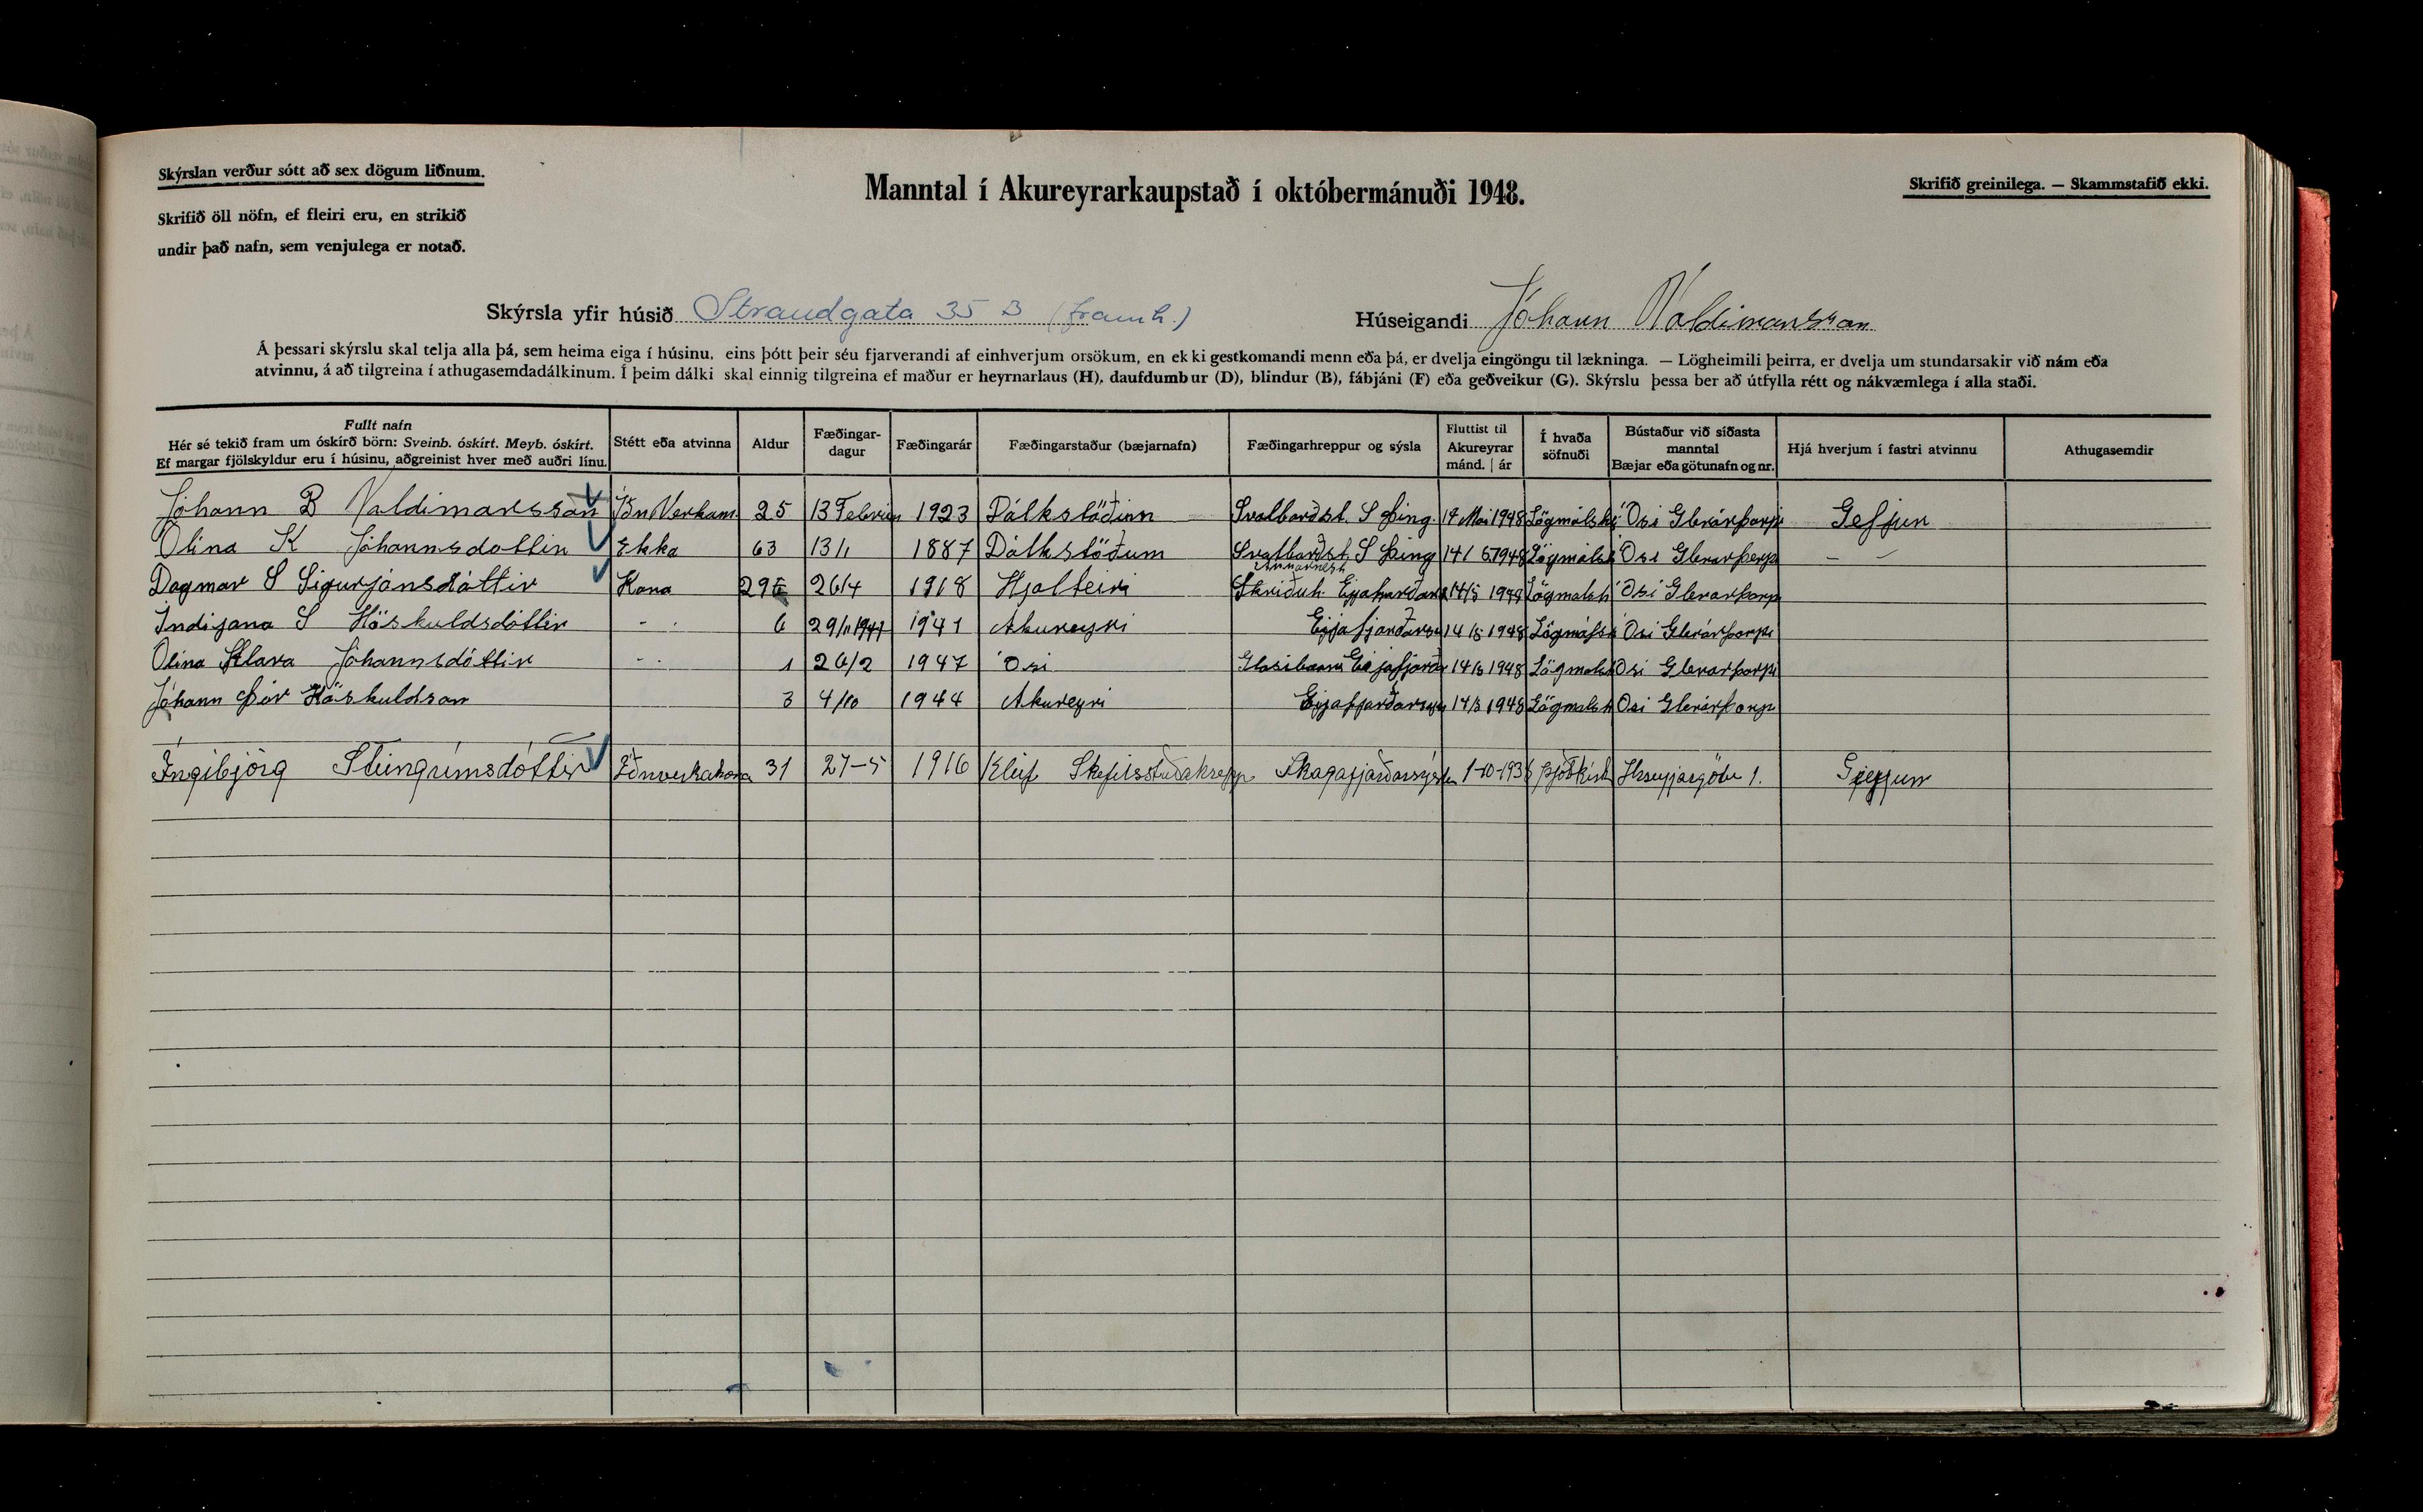 Skýrslan verður sótt að sex dögum liðnum.
Skrifið öll nöfn, ef fleiri eru, en strikið
undir það nafn, sem venjulega er notað.
Manntal í Akureyrarkaupstað í októbermánuði 1948.
Skrifið greinilega. — Skammstafið ekki.
Skýrsla yfir húsið Strandgata 35 B (framh.)
Húseigandi Jóhann Valdimarsson
Á þessari skýrslu skal telja alla þá, sem heima eiga í húsinu, eins þótt þeir séu fjarverandi af einhverjum orsökum, en ekki gestkomandi menn eða þá, er dvelja eingöngu til lækninga. — Lögheimili þeirra, er dvelja um stundarsakir við nám eða
atvinnu, á að tilgreina í athugasemdadálkinum. Í þeim dálki skal einnig tilgreina ef maður er heyrnarlaus (H), daufdumbur (D), blindur (B), fábjáni (F) eða geðveikur (G). Skýrslu þessa ber að útfylla rétt og nákvæmlega í alla staði.
Fullt nafn
Hér sé tekið fram um óskírð börn: Sveinb. óskírt. Meyb. óskírt.
Ef margar fjölskyldur eru í húsinu, aðgreinist hver með auðri línu.
Stétt eða atvinna
Aldur
Fæðingar-
dagur
Fæðingarár
Fæðingarstaður (bæjarnafn)
Fæðingarhreppur og sýsla
Fluttist til
Akureyrar
mánd. | ár
Í hvaða
söfnuði
Bústaður við síðasta
manntal
Bæjar eða götunafn og nr.
Hjá hverjum í fastri atvinnu
Athugasemdir
Jóhann B Valdimarsson Iðn Verkam 25 13 Febrúar 1923 Dálkstöðum Svalbarðst. S Þing. 14 Mai 1948 Ósi Glerárþorpi Gefjun
Olina K Jóhannsdottir Ekkja 63 13/1 1887 Dálkstöðum Svalbarðst. S Þing 14/5 1948 Ósi Glerárþorp — —
Dagmar S Sigurjónsdóttir Kona 29 26/4 1918 Hjalteiri Skriðuh. 14/5 1948 Ósi Glerarþorp
Indijana S Höskuldsdóttir - - 6 29/11 1941 1941 Akureyri Eyjafjarðars 14/5 1948 Ósi Glerárþorpi
Olina Klara Jóhannsdóttir - - 1 26/2 1947 Ósi 14/5 1948 Ósi Glerarþorpi
Jóhann Þór Höskuldson 3 4/10 1944 Akureyri Eyjafjarðarsýs 14/5 1948 Ósi Glerárþorp
Ingibjörg Steingrímsdóttir Iðnverkakona 31 27-5 1916 Kleif Skefilsstaðahrepp Skagafjarðarsýslu 1-10-193 Þjóðkirk 1. Gefjun